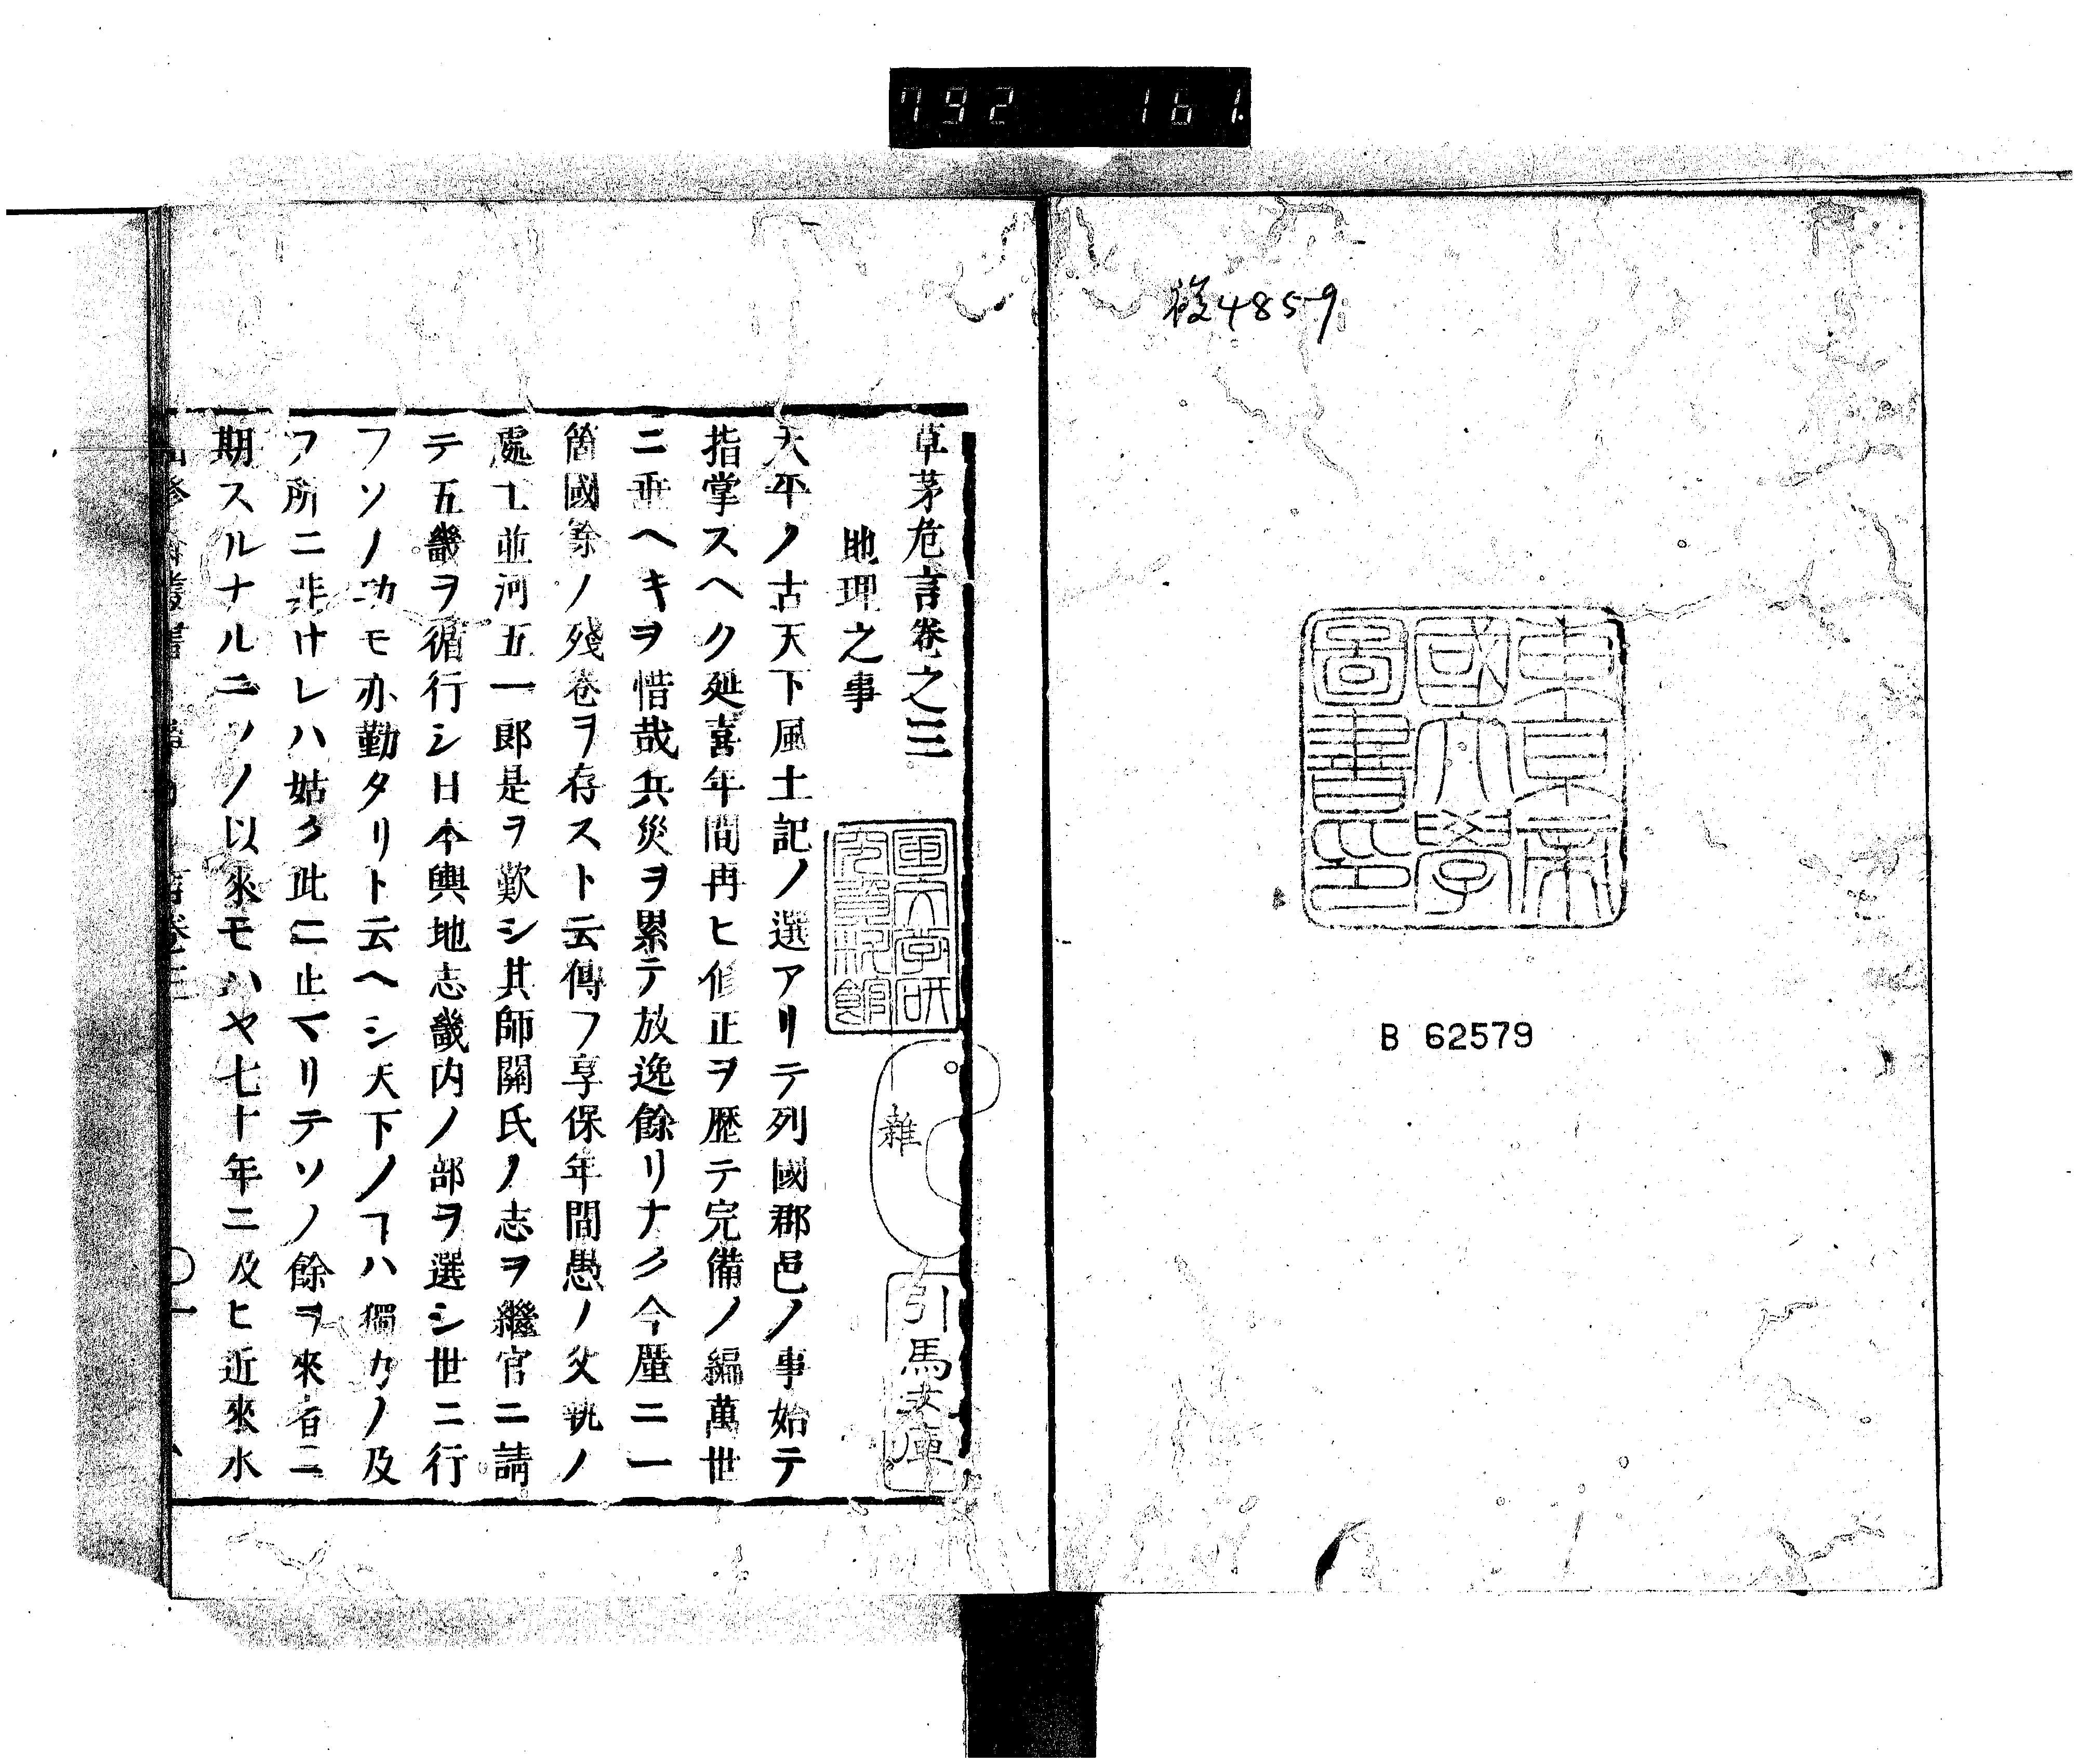 792 161
複4859
東京帝
國大學
圖書印
B 62579
草茅危言卷之三
地理之事
國文学研
究資料館
雜
引馬文庫
大平ノ古天下風土記ノ選アリテ列國郡邑ノ事始テ
指掌スヘク延喜年間再ヒ修正ヲ歷テ完備ノ編萬世
ニ垂ヘキヲ惜哉兵災ヲ累テ放逸餘リナク今廑ニ一
箇國餘ノ殘卷ヲ存スト云傳フ享保年間愚ノ父執ノ
處士並河五一郎是ヲ歎シ其師關氏ノ志ヲ繼官ニ請
テ五畿ヲ循行シ日本輿地志畿内ノ部ヲ選シ世ニ行
フソノ功モ亦勤タリト云ヘシ天下ノヿハ獨力ノ及
フ所ニ非サレハ姑ク此ニ止マリテソノ餘ヲ來者ニ
期スルナルニソノ以來モハヤ七十年ニ及ヒ近來水